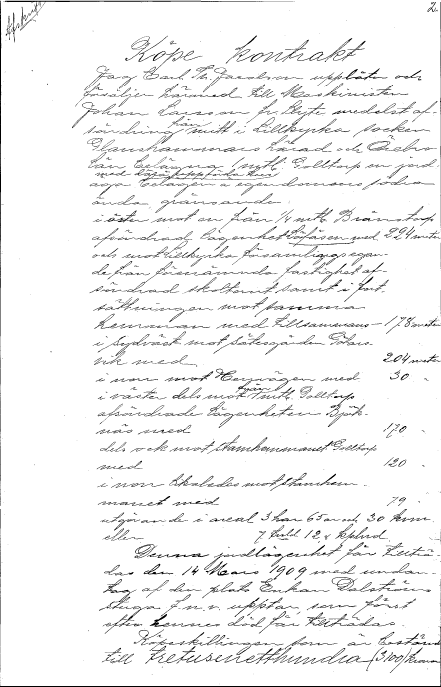 Afskrift
2.
Köpe kontrakt
Jag Carl Th. Jacobson upplåter och
försäljer härmed till Maskinisten
Johan Larsson fr. Hyte medelst af-
söndring från mitt i Lillkyrka socken
Glanshammars härad och Örebro
län belägna mtl. Golltorp en jord
med
äga belägen å egendomens södra
ända gränsande:
i öster mot en från 1/4 mtl. Bränstorp
afsöndrad lägenhet med 224 meter
och mot Lillkyrka församlings egan-
de från förenämnda fastighet af-
söndrad skoltomt samt i fort-
sättningen mot samma
hemman med tillsammans 178 meter
i sydväst mot sätesgården Göksvik
vik med 204 meter
i norr mot Herrvägen med 30 "
i väster dels mot från mtl. Golltorp
afsöndrade lägenheten Björk-
näs med 170 "
dels ock mot stamhemmanet Golltorp
med 120 "
i norr likaledes mot stamhem-
manet med 79 "
utgörande i areal 3 har 65 ar och 30 kvm.
eller 7 tunld 12,4 kpld
Denna jordlägenhet får tillträ-
das den 14 Mars 1909 med undan-
tag af den plats Enkan Dalströms
stuga f.n.v. upptar, som först
efter hennes död får tillträdas.
Köpeskillingen som är bestämd
till Tretusenetthundra (3,100) kronor